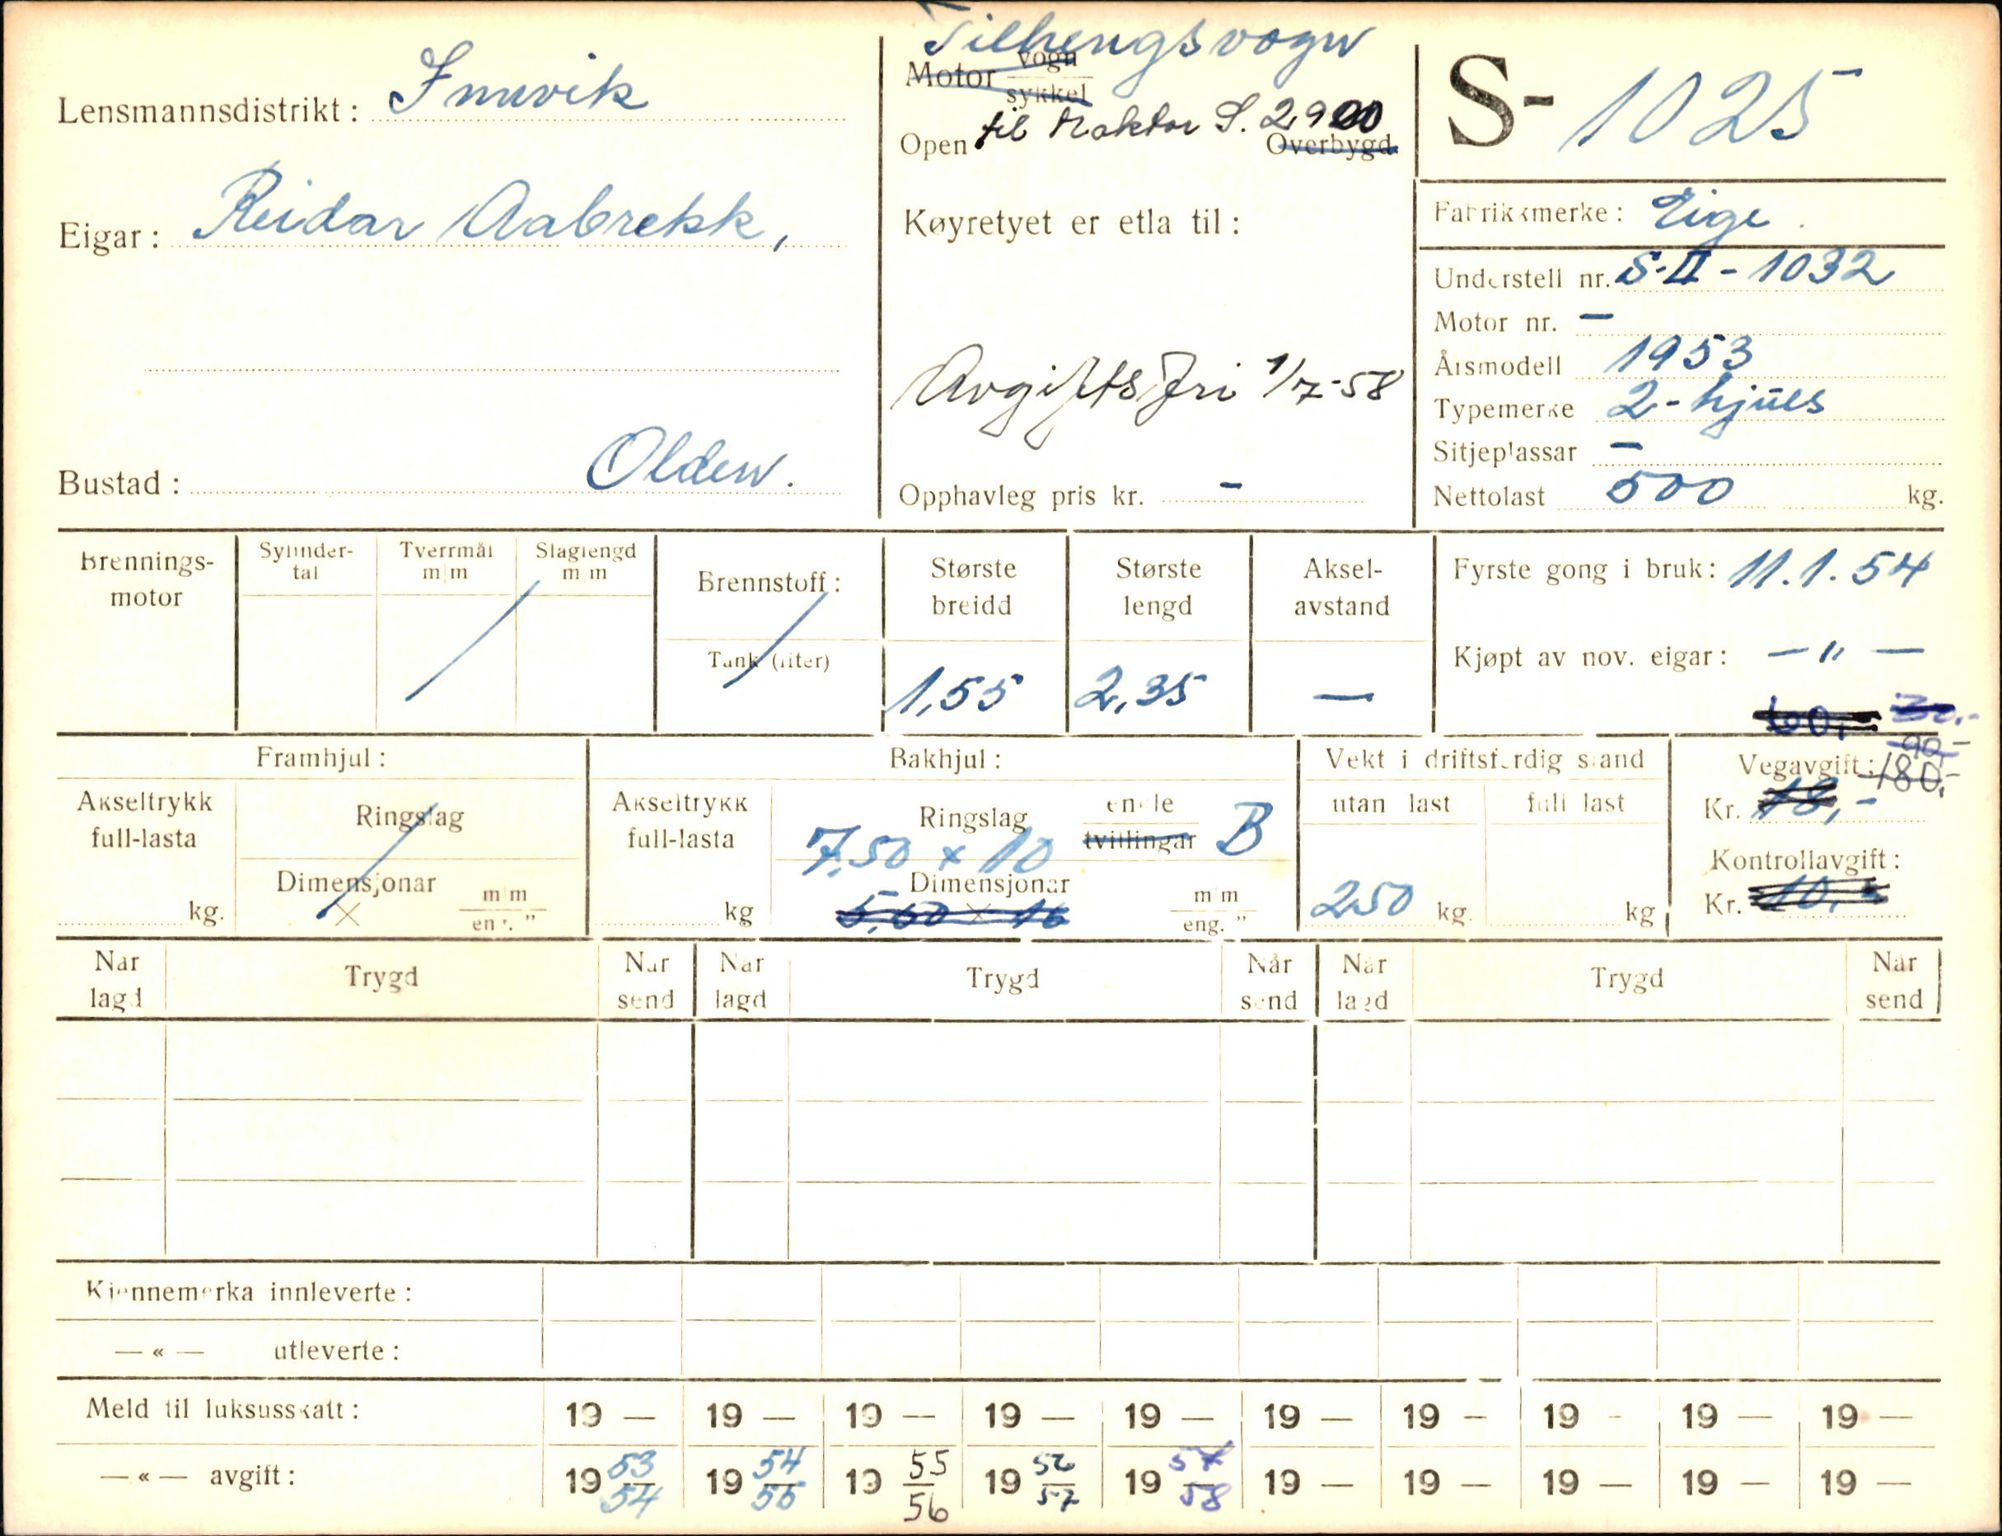 Lensmannsdistrikt: Innvik
Eigar: Reidar Aabrekk,
Bustad: Olden.
Tilhengsvogn
Motor vogn
sykkel
til traktor S. 2900
Open Overbygd
Køyretyet er etla til:
Avgiftsfri 1/7-58
Opphavleg pris kr. -
S- 1025
Fabrikkmerke: Eige.
Understell nr. S-II-1032
Motor nr. -
Årsmodell 1953
Typemerke 2-hjuls
Sitjeplassar -
Nettolast 500 kg.
Brennings-
motor
Sylinder-
tal
Tverrmål
m|m
Slaglengd
m|m
Brennstoff:
Tank (liter)
Største
breidd
1,55
Største
lengd
2,35
Aksel-
avstand
-
Fyrste gong i bruk: 11.1.54
Kjøpt av nov. eigar: -"-
60,- 30,-
Framhjul:
Akseltrykk
full-lasta
kg.
Ringslag
Dimensjonar
× m|m
eng. "
Bakhjul:
Akseltrykk
full-lasta
kg
Ringslag enkle
tvillingar B
7.50 × 10
Dimensjonar
5,60 × 16 m|m
eng. "
Vekt i driftsferdig stand
utan last full last
250 kg. kg
90,-
Vegavgift: 180,-
Kr. 18,-
Kontrollavgift:
Kr. 10,-
Når
lagd
Trygd
Når
send
Når
lagd
Trygd
Når
send
Når
lagd
Trygd
Når
send
Kjennemerka innleverte:
— « — utleverte:
Meld til luksusskatt: 19 — 19 — 19 — 19 — 19 — 19 — 19 — 19 - 19 — 19 —
— « — avgift: 19 53/54 19 54/55 19 55/56 19 56/57 19 57/58 19 — 19 — 19 — 19 — 19 —